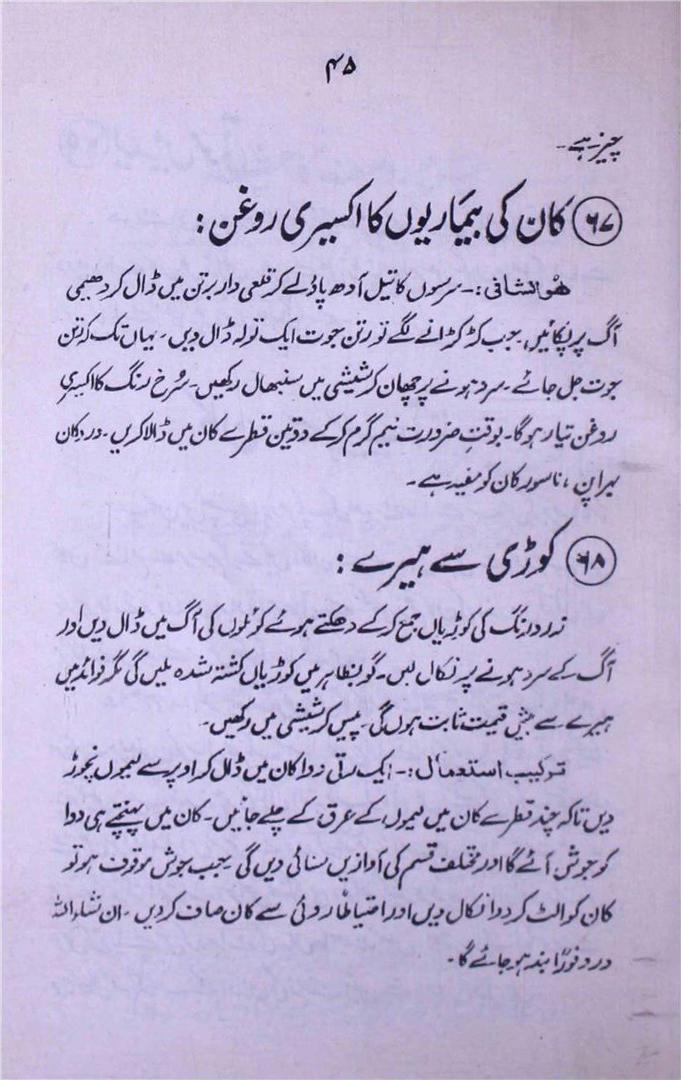 ۴۵
چیز ہے۔
۶۷ کان کی بیماریوں کا اکسیری روغن :
ھوالشافی :- سرسوں کا تیل آدھ پاؤ لے کر قلعی دار برتن میں ڈال کر دھیمی
آگ پر پکائیں، جب کڑکڑانے لگے تو رتن جوت ایک تولہ ڈال دیں۔ یہاں تک کہ رتن
جوت جل جائے۔ سرد ہونے پر چھان کر شیشی میں سنبھال رکھیں۔ سُرخ رنگ کا اکسیری
روغن تیار ہوگا۔ بوقتِ ضرورت نیم گرم کرکے دو تین قطرے کان میں ڈالا کریں۔ درد کان
بہرا پن، ناسور کان کو مفید ہے۔
۶۸ کوڑی سے ھیرے :
زرد رنگ کی کوڑیاں جمع کرکے دھکتے ہوئے کوئلوں کی آگ میں ڈال دیں اور
آگ کے سرد ہونے پر نکال لیں۔ گو بظاہر میں کوڑیاں کشتہ شدہ ملیں گی مگر فوائد میں
ھیرے سے بیش قیمت ثابت ہوں گی۔ پیس کر شیشی میں رکھیں۔
ترکیب استعمال :- ایک رتی دوا کان میں ڈال کر اوپر سے لیموں نچوڑ
دیں تاکہ چند قطرے کان میں لیموں کے عرق کے چلے جائیں۔ کان میں پہنچتے ہی دوا
کو جوش آئے گا اور مختلف قسم کی آوازیں سنائی دیں گی جب جوش موقوف ہو تو
کان کو الٹ کر دوا نکال دیں اور احتیاطاً روئی سے کان صاف کر دیں۔ ان شاء اللہ
درد فوراً بند ہو جائے گا۔